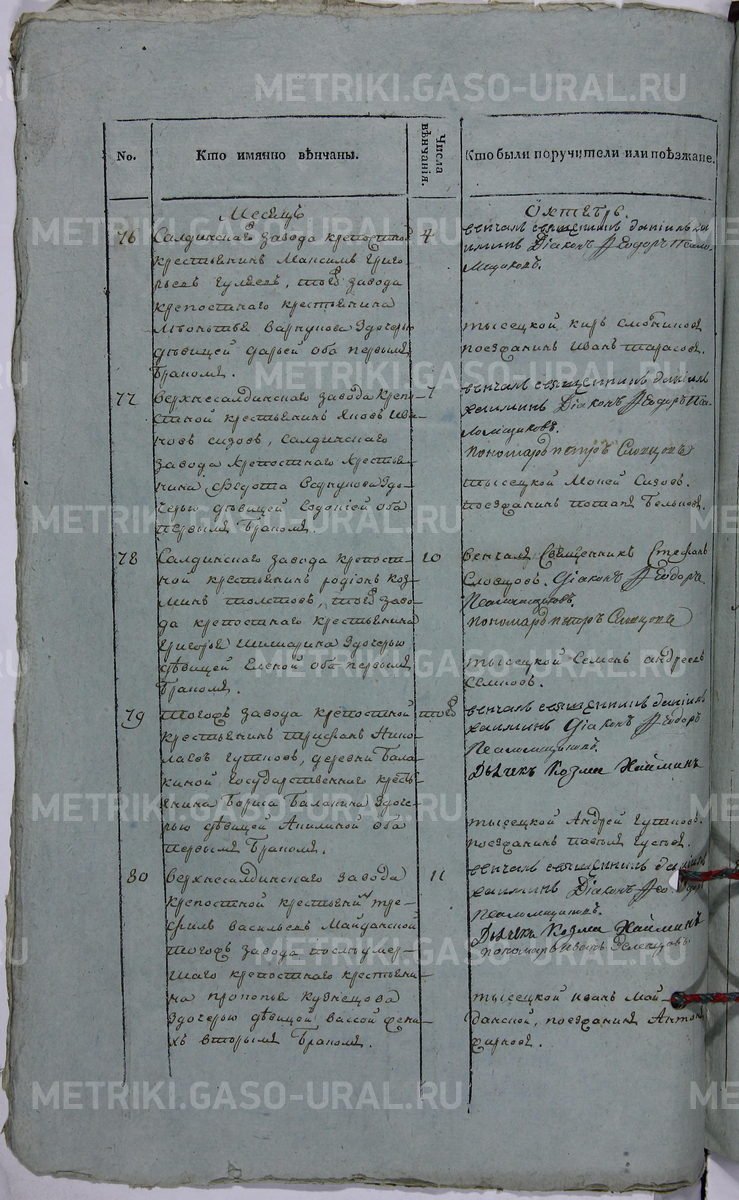 No.
Кто имянно вѣнчаны.
Числа вѣнчанія.
Кто были поручители или поѣзжане.
Месецъ
Октебрь.
76
Салдинскаго завода крепостной
крестьянинъ Максимъ Григо-
рьевъ Гуляевъ, тогожъ завода
крепостнаго крестьянина
Варкунова здочерью
дѣвицей Дарьей оба первымъ
бракомъ.
4
венчалъ священникъ Даніилъ Ха-
иминъ Діаконъ Ѳеодоръ Псало-
мщиковъ.
тысецкой Киръ
поезжанинъ Иванъ Тарасовъ.
77
Верхнесалдинскаго завода крепо-
стной крестьянинъ Яковъ Ива-
новъ Сизовъ, Салдинскаго
завода крепостнаго крестья-
нина Ѳедота здо-
черью дѣвицей оба
первымъ бракомъ.
7
венчалъ священникъ Даніилъ
Хаиминъ Діаконъ Ѳеодоръ Пса-
ломщиковъ.
пономарь петръ Словцовъ
тысецкой Мокей Сизовъ.
поезжанинъ потапъ Бельковъ.
78
Салдинскаго завода крепост-
ной крестьянинъ родіонъ Коз-
минъ толстовъ, тогожъ заво-
да крепостнаго крестьянина
Григорья Шишарина здочерью
дѣвицей Еленой оба первымъ
бракомъ.
10
Венчалъ Священникъ Стефанъ
Словцовъ. Діаконъ Ѳеодоръ
Псаломщиковъ.
пономарь петръ Словцовъ
тысецкой Семенъ андреевъ
79
тогожъ завода крепостной
крестьянинъ трифанъ Нико-
лаевъ Гутновъ, деревни Бала-
киной государственнаго кресть-
янина Бориса Балакина здоче-
рью дѣвицей Акилиной оба
первымъ бракомъ.
тогожъ
венчалъ священникъ Даніилъ
Хаиминъ Діаконъ Ѳеодоръ
Псаломщиковъ.
Дьячекъ Козма Хайминъ
тысецкой Андрей Гутновъ.
поезжанинъ павелъ Гусевъ.
80
Верхнесалдинскаго завода
крепостной крестьянинъ тре-
филъ Васильевъ Майданской
тогожъ завода послѣ умер-
шаго крепостнаго крестьяни-
на прокопья Кузнецова
здочерью дѣвицей Вассой жени-
хъ вторымъ бракомъ.
11
венчалъ священникъ Даніилъ
Хаиминъ Діаконъ Ѳеодоръ
Псаломщиковъ.
Дьячекъ Козма Хайминъ
пономарь Иванъ
тысецкой иванъ Май-
данской, поезжанинъ Антонъ
METRIKI.GASO-URAL.RU